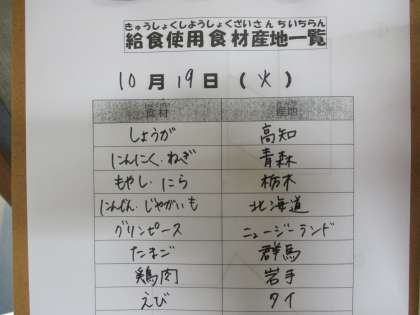 きゅうしょくしようしょくざいさんちいちらん
給食使用食材産地一覧
10月19日(火)
食材 産地
しょうが 高知
にんにく・ねぎ 青森
もやし・にら 栃木
にんじん・じゃがいも 北海道
グリンピース ニュージーランド
たまご 群馬
鶏肉 岩手
えび タイ